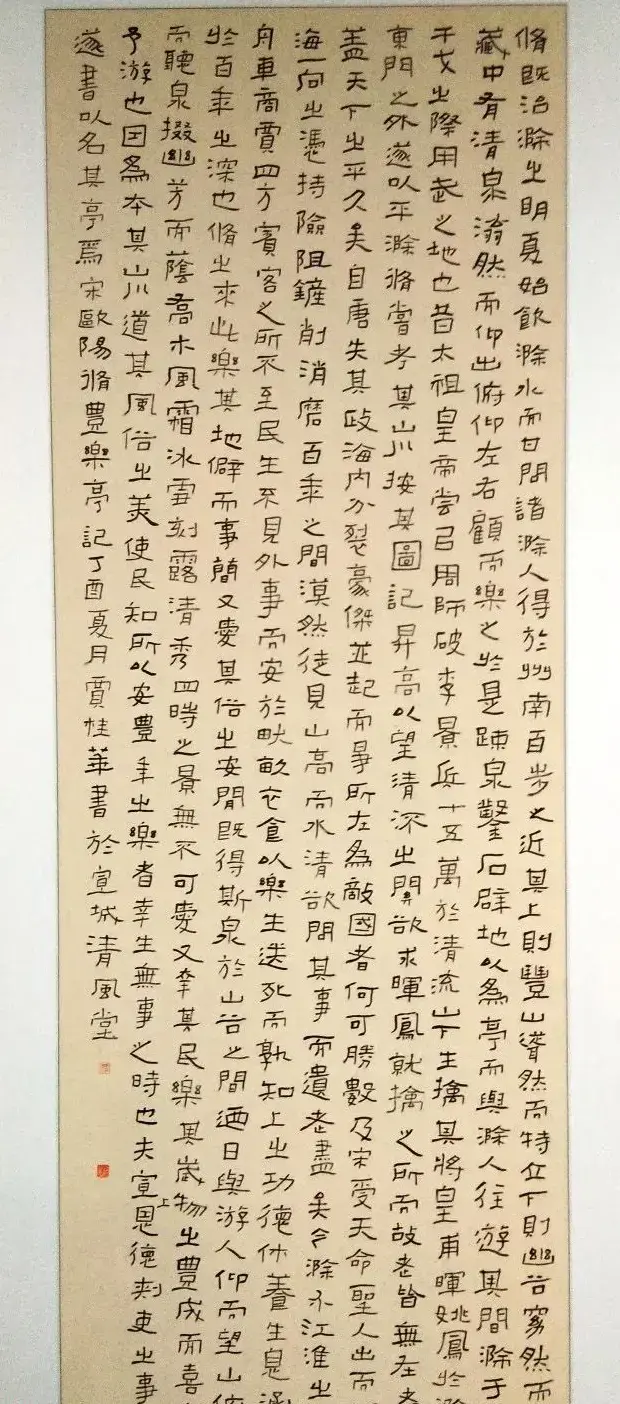 脩既治滁之明夏始飲滁水而甘問諸滁人得於州南百步之近其上則豐山聳然而特立下則幽谷窈然而
藏中有清泉滃然而仰出俯仰左右顧而樂之於是疎泉鑿石辟地以為亭而與滁人往遊其間滁于
干戈之際用武之地也昔太祖皇帝嘗以周師破李景兵十五萬於清流山下生擒其將皇甫暉姚鳳於滁
東門之外遂以平滁脩嘗考其山川按其圖記昇高以望清流之關欲求暉鳳就擒之所而故老皆無在者
蓋天下之平久矣自唐失其政海內分裂豪傑並起而爭所在為敵國者何可勝數及宋受天命聖人出而
海一向之憑恃險阻鏟削消磨百年之間漠然徒見山高而水清欲問其事而遺老盡矣今滁介江淮之
舟車商賈四方賓客之所不至民生不見外事而安於畎畝衣食以樂生送死而孰知上之功德休養生息涵
於百年之深也脩之來此樂其地僻而事簡又愛其俗之安閒既得斯泉於山谷之間廼日與游人仰而望山俯
而聽泉掇幽芳而蔭高木風霜冰雪刻露清秀四時之景無不可愛又幸其民樂其歲物之豐成而喜
予游也因為本其山川道其風俗之美使民知所以安豐年之樂者幸生無事之時也夫宣上恩德刺吏之事
遂書以名其亭焉宋歐陽脩豐樂亭記丁酉夏月賈桂華書於宣城清風堂